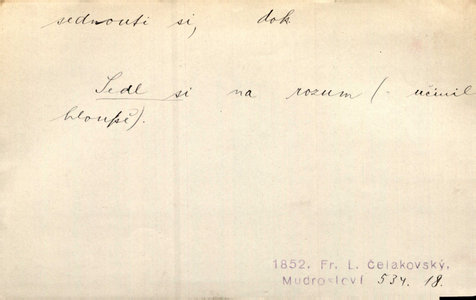 sednouti si, dok
Sedl si na rozum (= učinil
hloupě).
1852. Fr. L. Čelakovský,
Mudrosloví 534. 18.